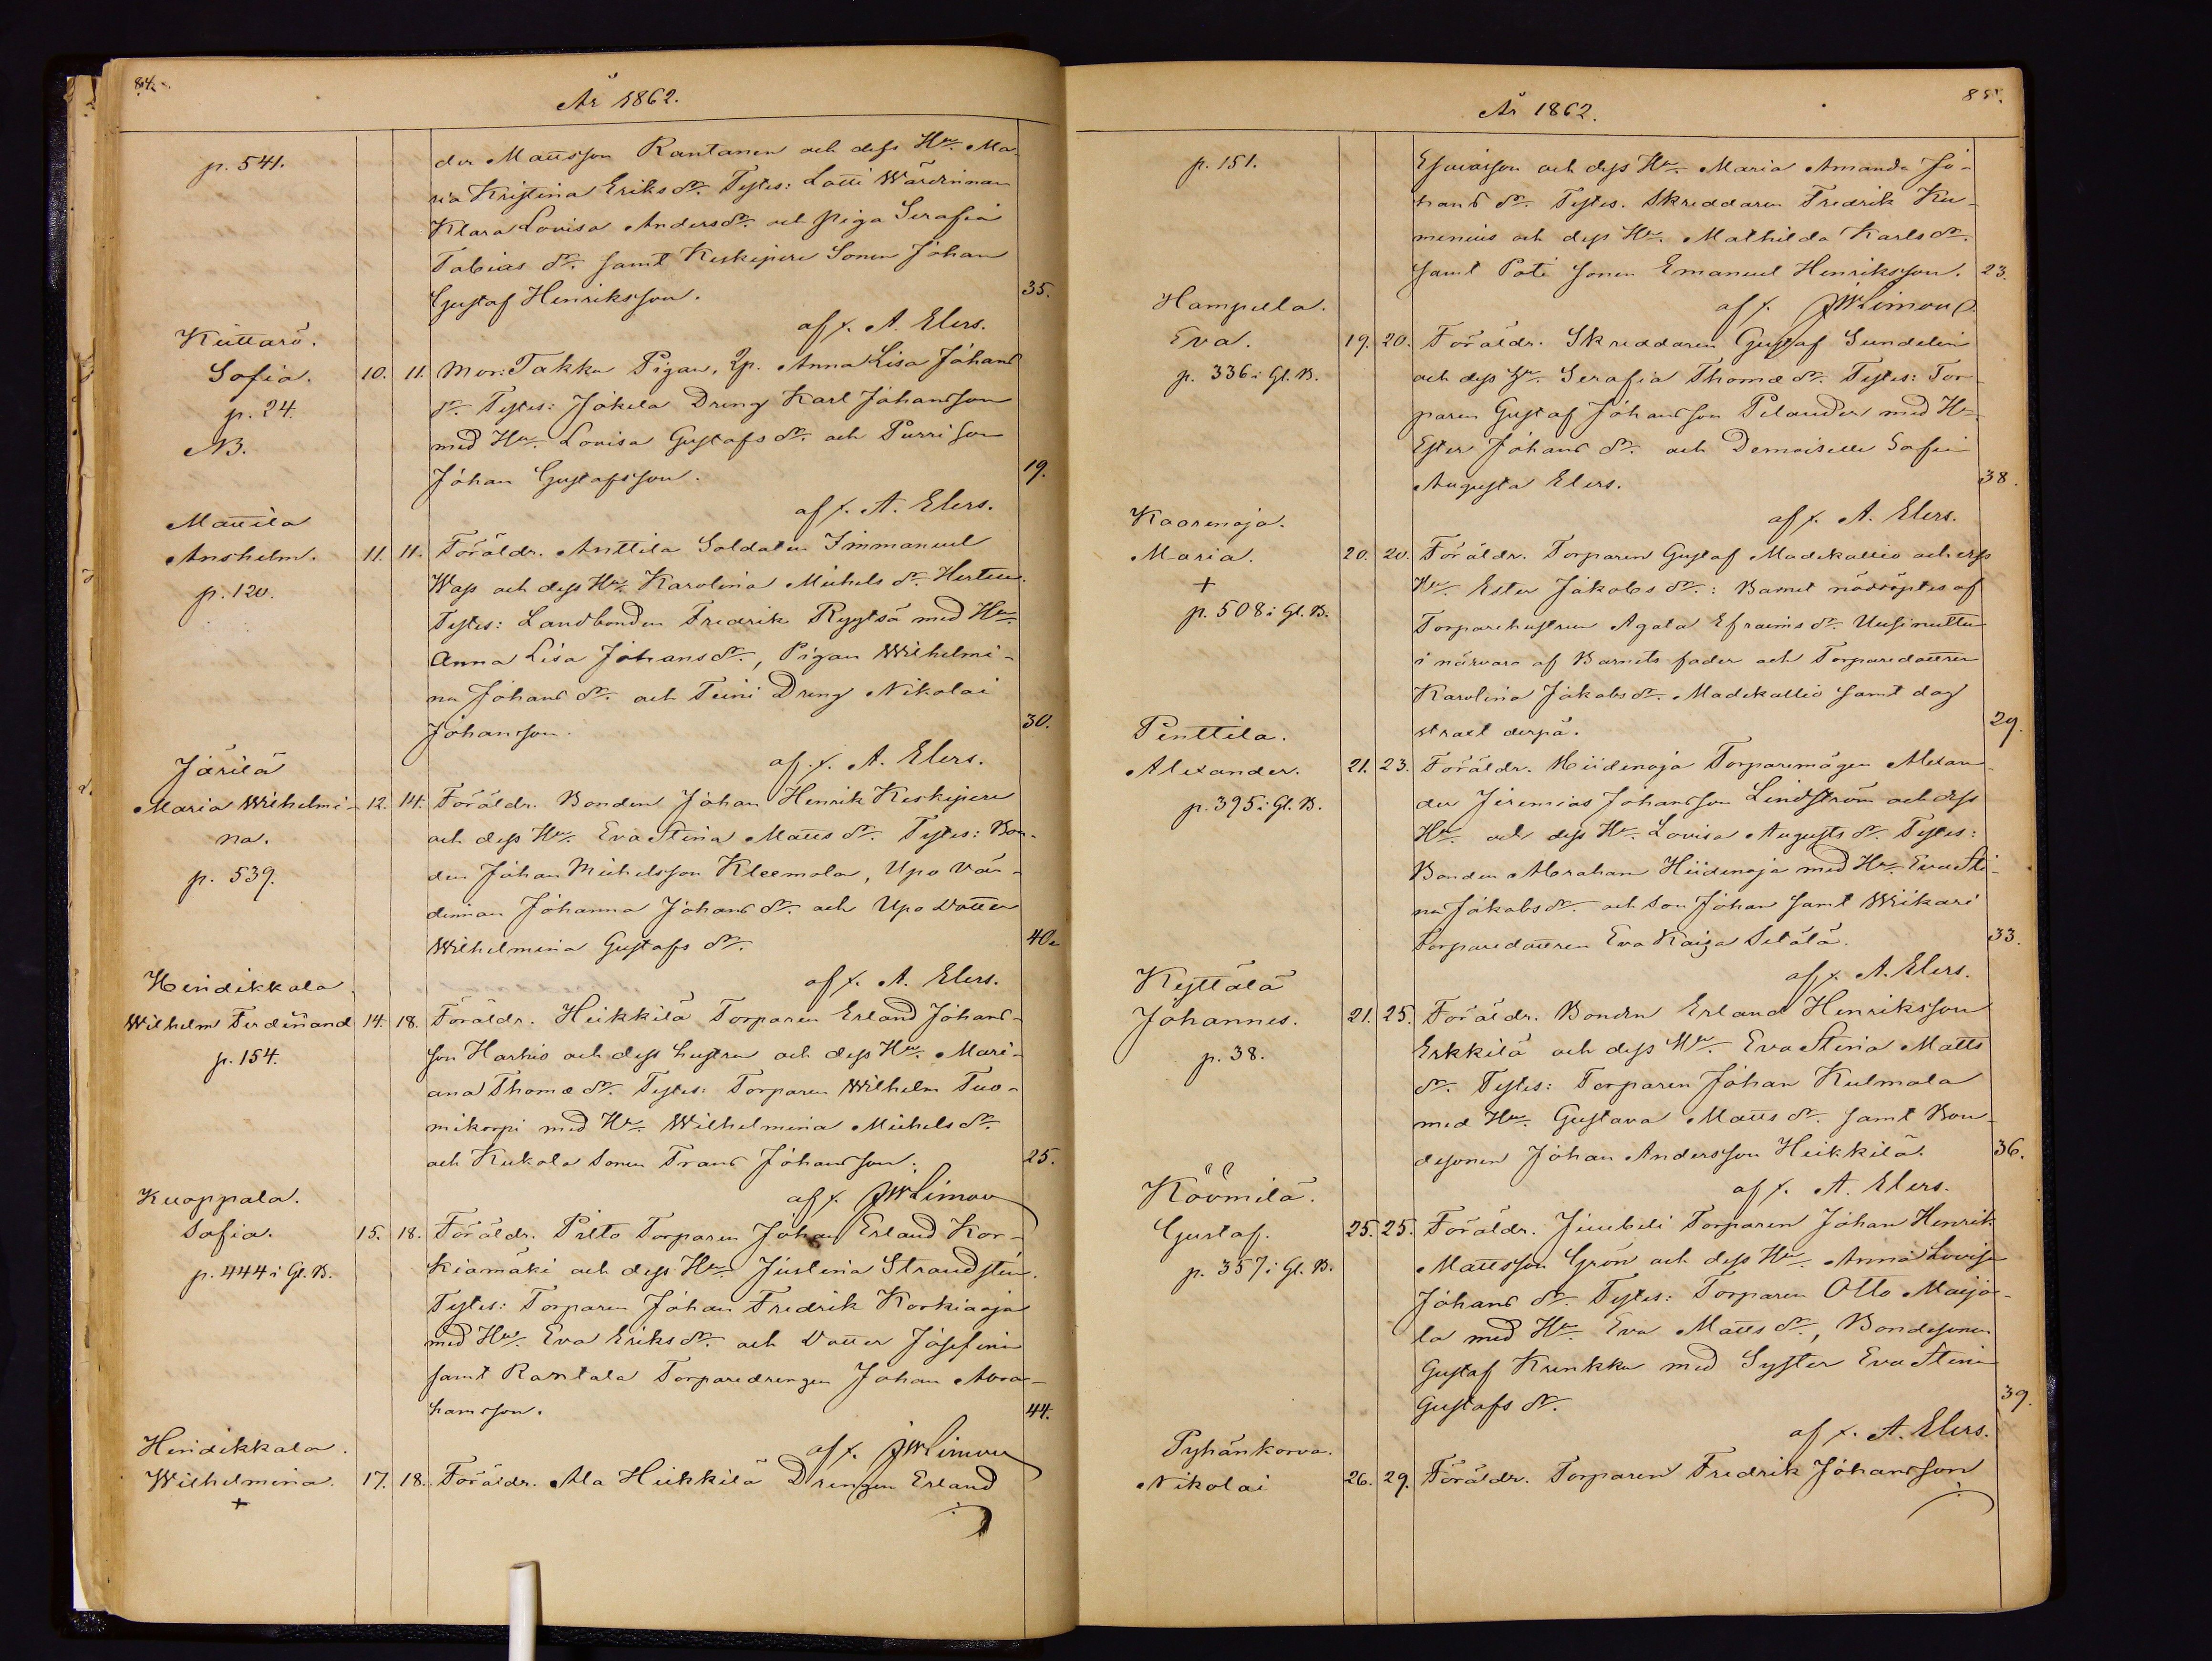 84.
År 1862.
p. 541.
der Mattsson Rantanen och dess Hu. Ma-
ria Kristina Eriksdr. Testes: Lotti Wärdinnan
Klara Lovisa Andersdr. och piga Serafia
Tobias dr. samt Keskipere Sonen Johan
Gustaf Henriksson. 35.
af f. A. Elers.
Kuttarö.
Sofia. 10. 11. Mor: Takku Pigan, Qp. Anna Lisa Johans
p. 24. dr. Testes: Jokela Dreng Karl Johansson
NB. med Hu. Lovisa Gustafsdr. och Purri Son
Johan Gustafsson. 19.
af f. A. Elers.
Mattila
Anshelm. 11. 11. Föräldr. Anttila Soldaten Immanuel
p. 120. Wass och dess Hu. Karolina Michels dr. Herten.
Testes: Landbonden Fredrik Ryytsä med Hu.
Anna Lisa Johansdr., Pigan Wilhelmi-
na Johans dr. och Teini Dreng Nikolai
Johansson. 30.
af f. A. Elers.
Järilä
Maria Wilhelmi- 12. 14. Föräldr. Bonden Johan Henrik Keskipere
na. och dess Hu. Eva Stina Matts dr. Testes: Bon-
p. 539. den Johan Michelsson Kleemola, Upo Vär-
dinnan Johanna Johans dr. och Upo dotter
Wilhelmina Gustafs dr. 40.
af f. A. Elers.
Heindikkala.
Wilhelm Ferdinand 14. 18. Föräldr. Heikkilä Torparen Erland Johans-
p. 154. son Harhio och dess hustru och dess Hu. Mari-
ana Thomæ dr. Testes: Torparen Wilhelm Tuo-
mikorpi med Hu. Wilhelmina Michels dr.
och Kukola Sonen Frans Johansson. 25.
af f. JWLimon
Kuoppala.
Sofia. 15. 18. Föräldr. Pilto Torparen Johan Erland Kor-
p. 444 i Gl. B. kiamäki och dess Hu. Justina Strandstén.
Testes: Torparen Johan Fredrik Korkiaoja
med Hu. Eva Eriksdr. och dotter Josefina
samt Rantala Torparedrengen Johan Abra-
hamsson. 44.
af f. JWLimon
Hendikkala.
Wilhelmina. 17. 18. Föräldr. Ala Heikkilä Drengen Erland
+
85.
År 1862.
p. 151. Esaiasson och dess Hu. Maria Amanda Jo-
hans dr. Testes. Skreddaren Fredrik Ku-
menius och dess Hu. Mathilda Karlsdr.
samt Poti Sonen Emanuel Henriksson. 23.
af f. JWLimon
Hampula.
Eva. 19. 20. Föräldr. Skreddaren Gustaf Sundelin
p. 336 i Gl. B. och dess Hu. Serafia Thomæ dr. Testes: Tor-
paren Gustaf Johansson Pelander med Hu.
Ester Johans dr. och Demoiselle Sofia
Augusta Elers. 38.
af f. A. Elers.
Kaorenoja.
Maria. 20. 20. Föräldr. Torparen Gustaf Madekallio och dess
+ Hu. Ester Jakobs dr.: Barnet nöddöptes af
p. 508 i Gl. B. Torparehustrun Agata Efraims dr. Uusinuttu
i närvaro af Barnets fader och Torparedottren
Karolina Jakobs dr. Madekallio samt dog
strax derpå. 29.
Penttila.
Alexander. 21. 23. Föräldr. Hiidenoja Torparemågen Alexan-
p. 395 i Gl. B. der Jeremias Johansson Lindström och dess
Hu. och dess Hu. Lovisa Augusts dr. Testes:
Bonden Abraham Hiidenoja med Hu. Eva Sti-
na Jakobs dr. och son Johan samt Wiikari
Torparedottren Eva Kaisa Setälä. 33.
af f. A. Elers.
Kyttälä
Johannes. 21. 25. Föräldr. Bonden Erland Henriksson
p. 38. Erkkilä och dess Hu. Eva Stina Matts
dr. Testes: Torparen Johan Kulmala
med Hu. Gustava Matts dr. samt Bon-
desonen Johan Andersson Heikkilä. 36.
af f. A. Elers.
Köömilä.
Gustaf. 25. 25. Föräldr. Juubeli Torparen Johan Henrik
p. 357 i Gl. B. Mattsson Grön och dess Hu. Anna Lovisa
Johans dr. Testes: Torparen Otto Maijo-
la med Hu. Eva Matts dr., Bondesonen
Gustaf Krenkku med Syster Eva Stina
Gustafs dr. 39.
af f. A. Elers.
Pyhänkorva.
Nikolai 26. 29. Föräldr. Torparen Fredrik Johansson